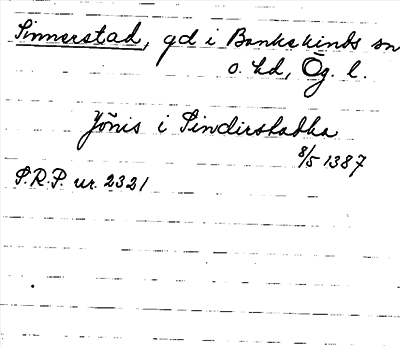 Sinnerstad, gd i Bankekinds sn
o. hd, Ög. l.
Jönis i Sindirstadha
8/5 1387
S.R.P. nr. 2321